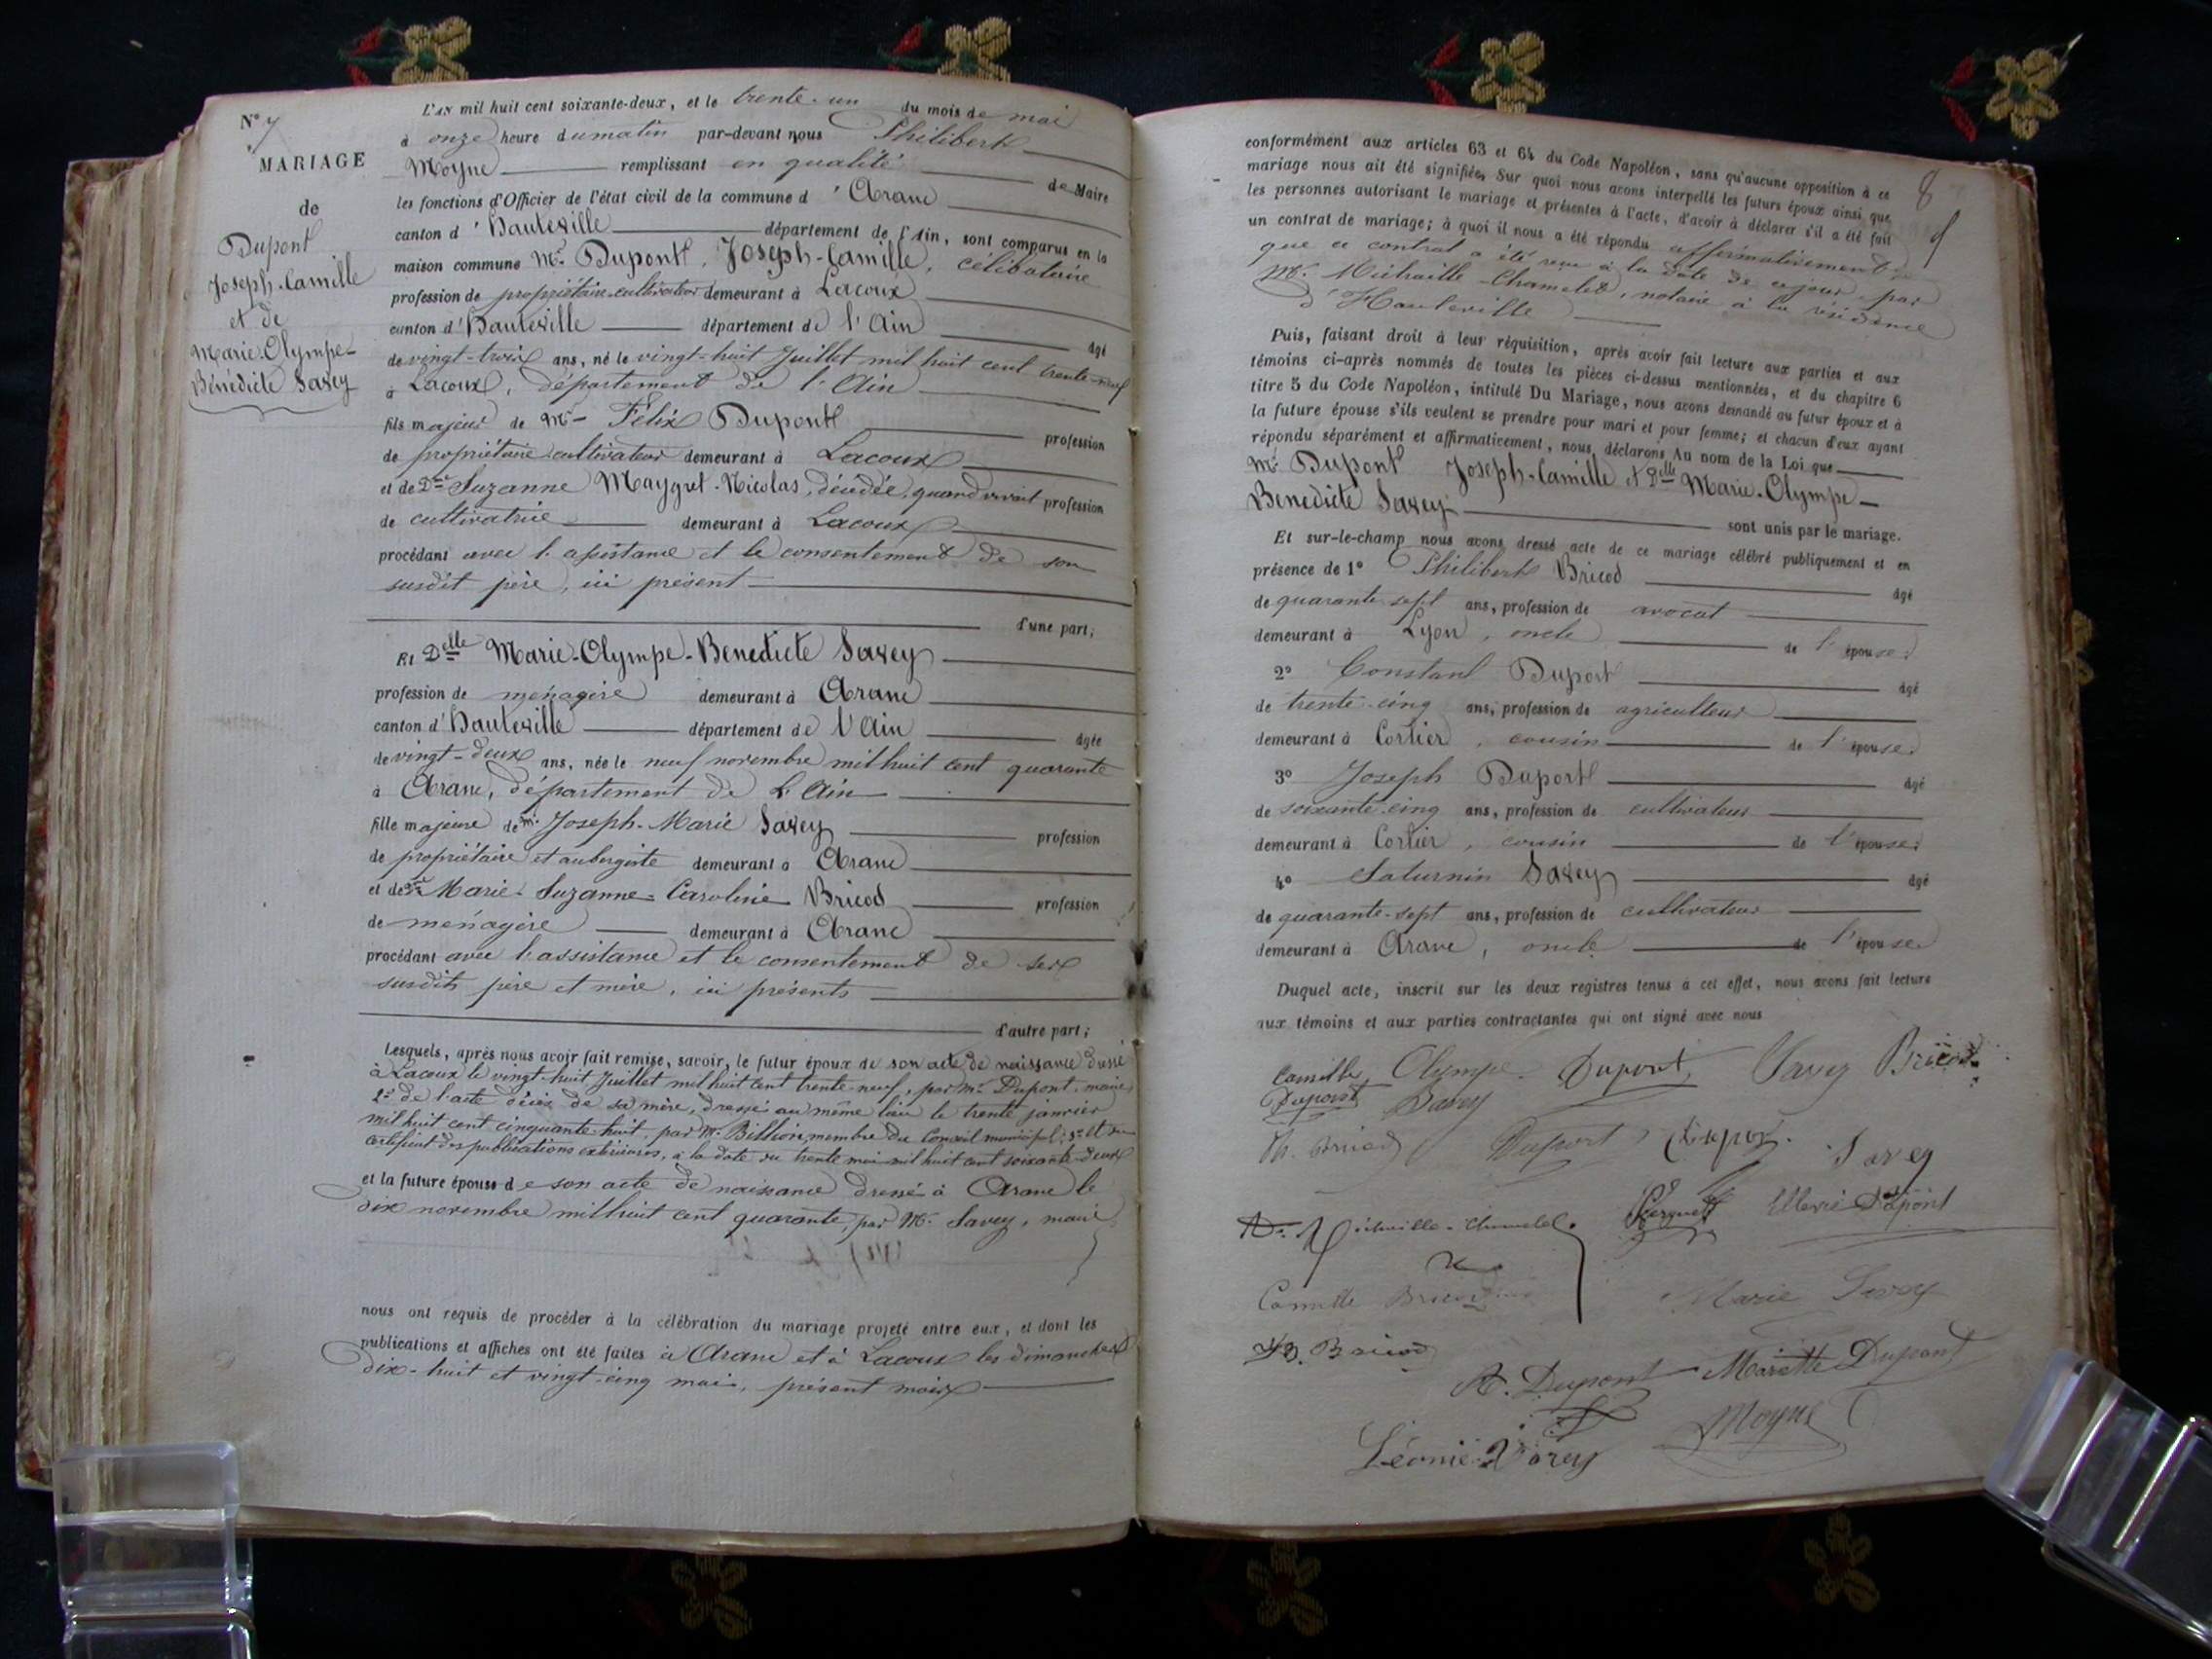 N° 7
MARIAGE
de
Dupont
Joseph-Camille
et de
Marie-Olympe-
Bénédicte Savey
L'AN mil huit cent soixante-deux, et le trente-un du mois de mai
à onze heure du matin par-devant nous Philibert
Moyne remplissant en qualité de Maire
les fonctions d'Officier de l'état civil de la commune d'Aranc
canton d'Hauteville département de l'Ain, sont comparus en la
maison commune Mr Dupont, Joseph-Camille, célibataire
profession de propriétaire cultivateur demeurant à Lacoux
canton d'Hauteville département de l'Ain âgé
de vingt-trois ans, né le vingt-huit Juillet mil huit cent trente-neuf
à Lacoux, département de l'Ain
fils majeur de Mr Félix Dupont profession
de propriétaire cultivateur demeurant à Lacoux
et de Dme Suzanne Maygret-Nicolas, décédée, quand vivait profession
de cultivatrice demeurant à Lacoux
procédant avec l'assistance et le consentement de son
susdit père, ici présent
d'une part;
Et Delle Marie-Olympe-Benedicte Savey
profession de ménagère demeurant à Aranc
canton d'Hauteville département de l'Ain âgée
de vingt-deux ans, née le neuf novembre mil huit cent quarante
à Aranc, département de l'Ain
fille majeure de Mr Joseph-Marie Savey profession
de propriétaire et aubergiste demeurant à Aranc
et de Dme Marie-Suzanne-Caroline Bricod profession
de ménagère demeurant à Aranc
procédant avec l'assistance et le consentement de ses
susdits père et mère, ici présents
d'autre part;
Lesquels, après nous avoir fait remise, savoir, le futur époux de son acte de naissance dressé
à Lacoux le vingt-huit Juillet mil huit cent trente-neuf, par Mr Dupont, maire,
2° de l'acte décès de sa mère, dressé au même lieu le trente janvier
mil huit cent cinquante-huit, par Mr Billion, membre du Conseil municipal; 3° et du
certificat des publications extérieures, à la date du trente mai mil huit cent soixante-deux
et la future épouse de son acte de naissance dressé à Aranc le
dix novembre mil huit cent quarante, par Mr Savey, maire,
nous ont requis de procéder à la célébration du mariage projeté entre eux, et dont les
publications et affiches ont été faites à Aranc et à Lacoux les dimanches
dix-huit et vingt-cinq mai, présent mois
8
conformément aux articles 63 et 64 du Code Napoléon, sans qu'aucune opposition à ce
mariage nous ait été signifiée. Sur quoi nous avons interpellé les futurs époux ainsi que
les personnes autorisant le mariage et présentes à l'acte, d'avoir à déclarer s'il a été fait
un contrat de mariage; à quoi il nous a été répondu affirmativement
que ce contrat a été reçu à la date de ce jour, par
Mr Miétraille-Chamelet, notaire à la résidence
d'Hauteville
Puis, faisant droit à leur réquisition, après avoir fait lecture aux parties et aux
témoins ci-après nommés de toutes les pièces ci-dessus mentionnées, et du chapitre 6
titre 5 du Code Napoléon, intitulé Du Mariage, nous avons demandé au futur époux et à
la future épouse s'ils veulent se prendre pour mari et pour femme; et chacun d'eux ayant
répondu séparément et affirmativement, nous déclarons Au nom de la Loi que
Mr Dupont Joseph-Camille et Delle Marie-Olympe-
Benedicte Savey sont unis par le mariage.
Et sur-le-champ nous avons dressé acte de ce mariage célébré publiquement et en
présence de 1° Philibert Bricod âgé
de quarante-sept ans, profession de avocat
demeurant à Lyon, oncle de l'épouse;
2° Constant Duport âgé
de trente-cinq ans, profession de agriculteur
demeurant à Corlier, cousin de l'épouse;
3° Joseph Duport âgé
de soixante-cinq ans, profession de cultivateur
demeurant à Corlier, cousin de l'épouse;
4° Saturnin Savey âgé
de quarante-sept ans, profession de cultivateur
demeurant à Aranc, oncle de l'épouse
Duquel acte, inscrit sur les deux registres tenus à cet effet, nous avons fait lecture
aux témoins et aux parties contractantes qui ont signé avec nous
Camille Olympe Dupont Savey Bricod
Dupont Savey
Ph. Bricod Duport Duport Savey
Marie Dupont
Camille Bricod Marie Savey
Bricod
A. Dupont Mariette Dupont
Moyne
Léonie Savey